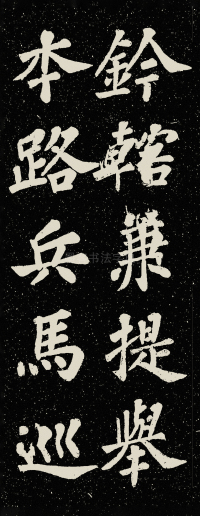 鈐轄兼提舉
本路兵馬巡